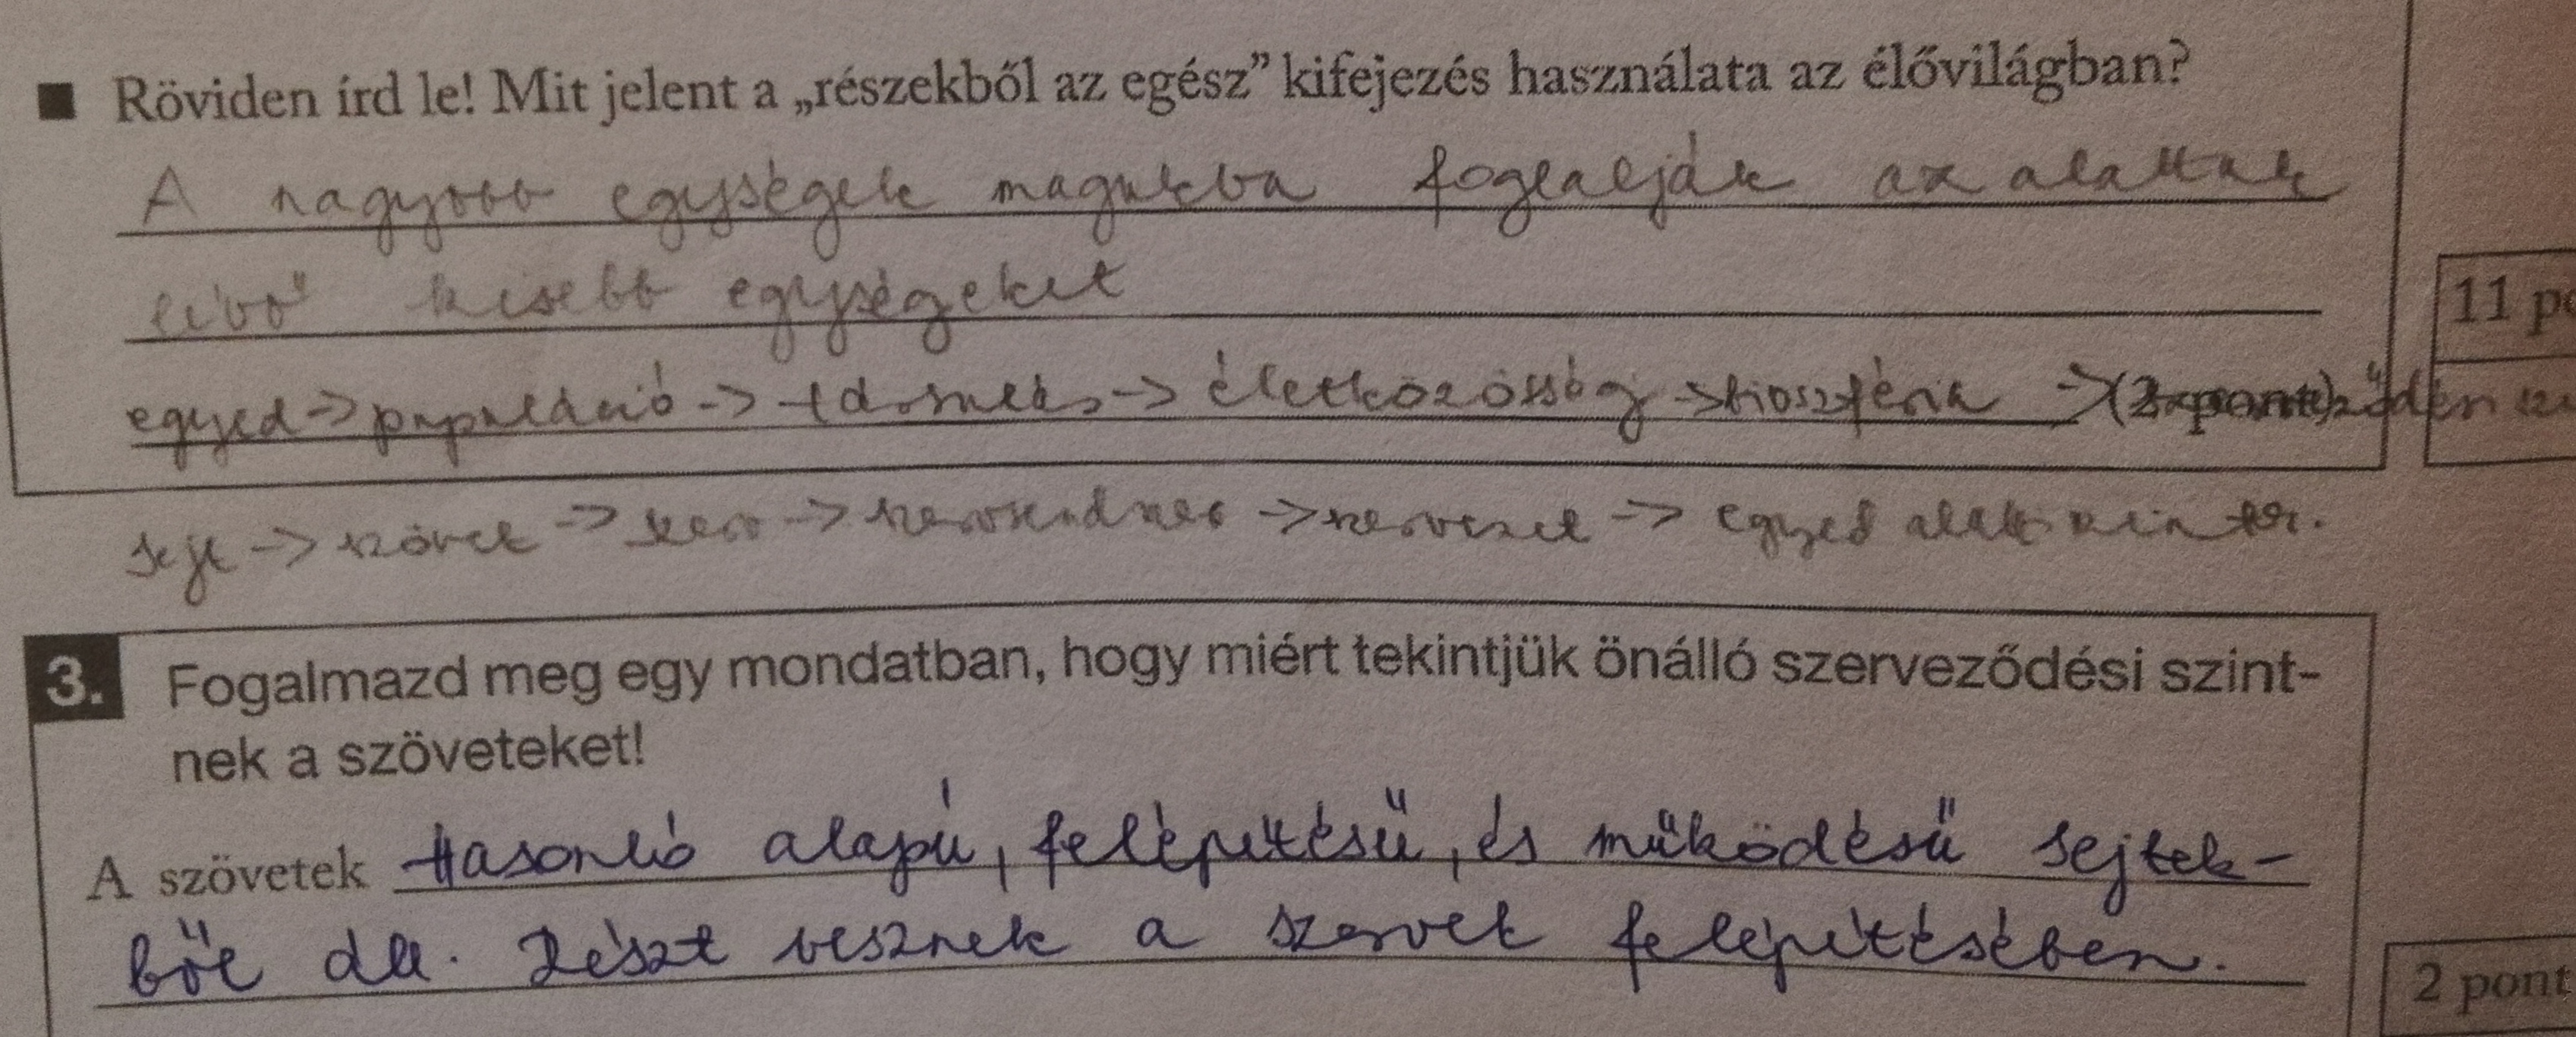 ■ Röviden írd le! Mit jelent a „részekből az egész” kifejezés használata az élővilágban?
A nagyobb egységek magukba foglalják az alattuk
lévő kisebb egységeket
11 p
egyed -> populáció -> társulás -> életközösség -> bioszféra -> (2 pont)
sejt -> szövet -> szerv -> szervrendszer -> szervezet -> egyed alatti szintek.
3. Fogalmazd meg egy mondatban, hogy miért tekintjük önálló szerveződési szint-
nek a szöveteket!
A szövetek Hasonló alapú, felépítésű, és működésű sejtek-
ből áll. Részt vesznek a szervek felépítésében.
2 pont